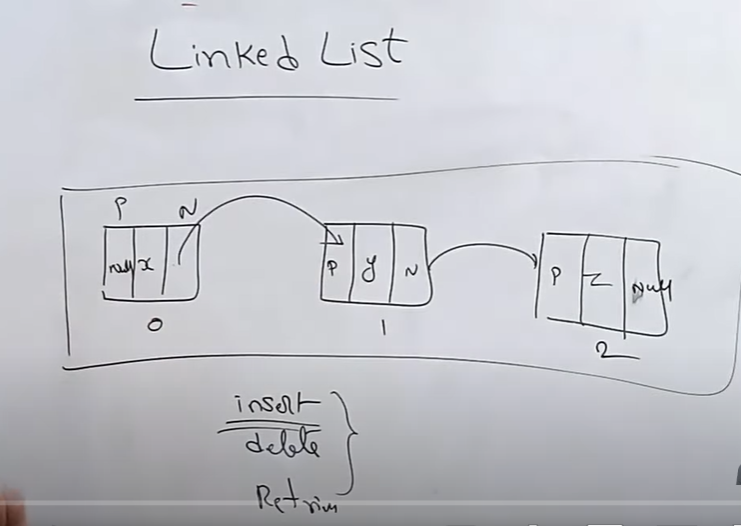 Linked List
P N
null x
P y N
P z Null
0
1
2
insert
delete
Retriv